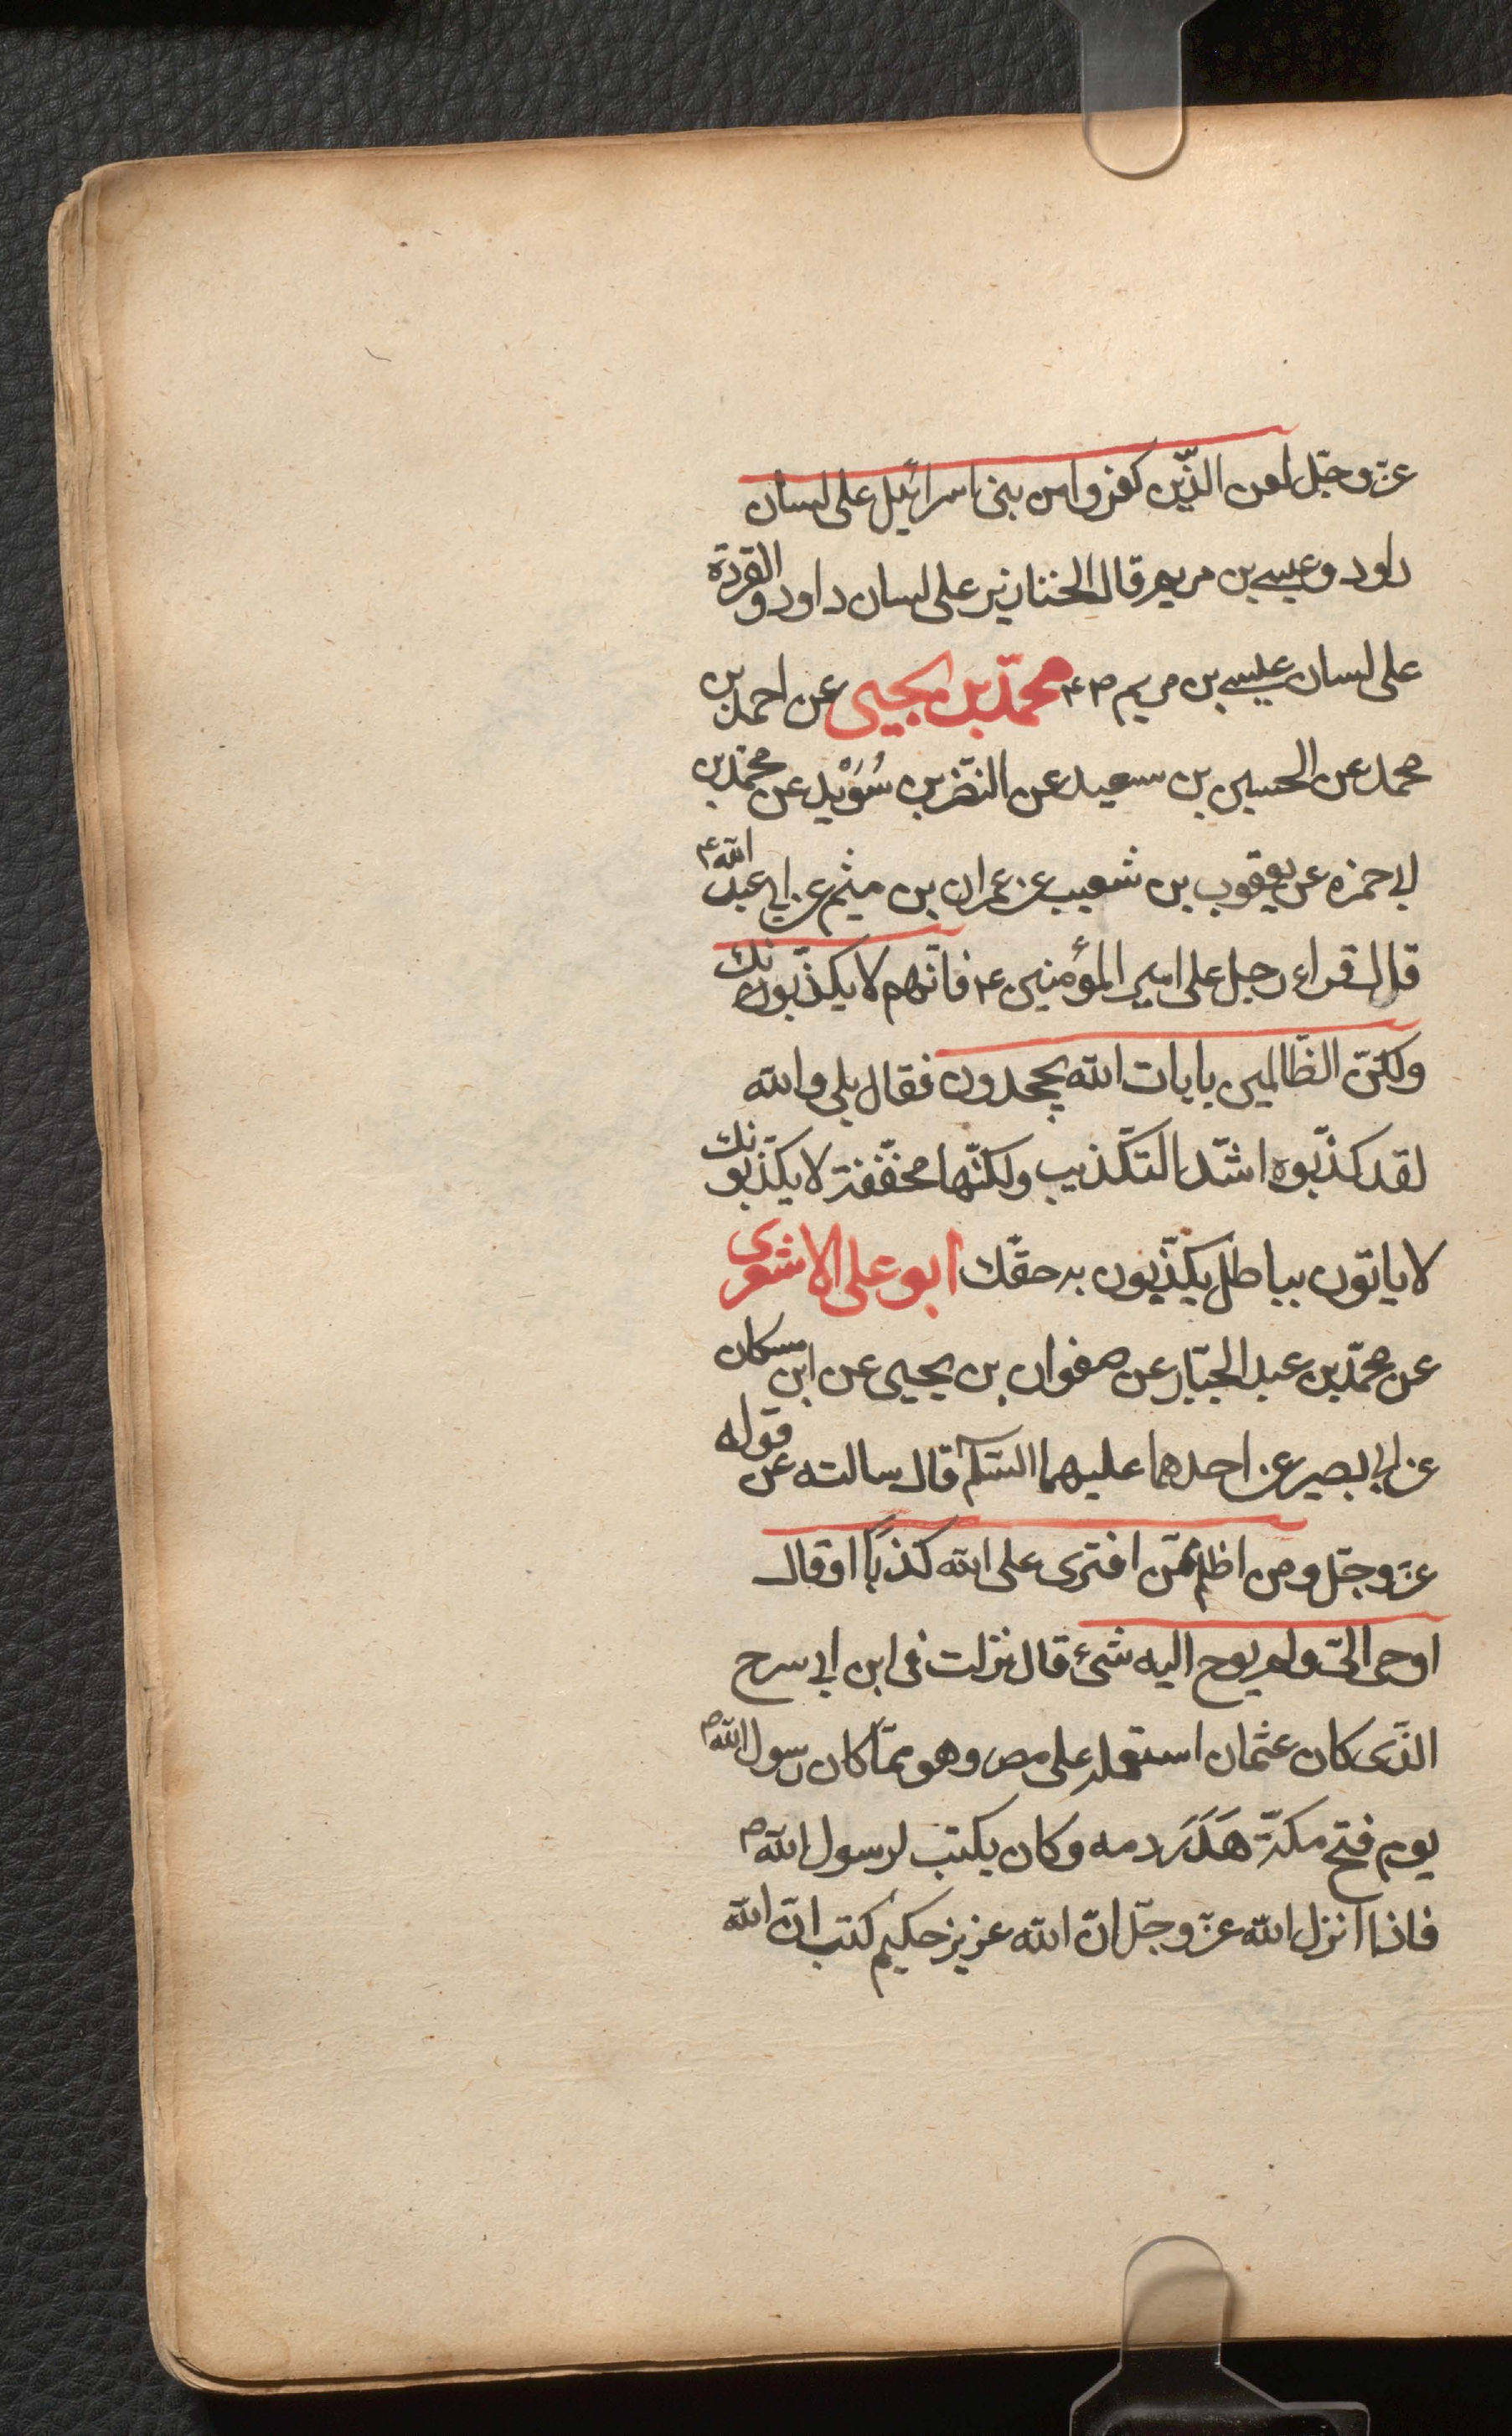 عزوجل لعن الذّين كفروا من بنى اسرائيل على لسان
داود وعيسى بن مريم قال الخنازير على لسان داود و القردة
على لسان عليسى بن مريم ۴۳ محمّد بن يحيى عن احمد بن
محمد عن الحسين بن سعيد عن النضّر بن سُوَيْد عن محمّد بن
ابى حمزه عن يعقوب بن شعيب عن عمران بن ميثم عن ابى عبد اللّه ع
قال قراء رجل على امير المؤمنين ع فانّهم لا يكذّبونك
ولكنّ الظّالمين بايات اللّه يجحدون فقال بلى واللّه
لقد كذّبوه اشدّ التكّذيب ولكنّها مخفّفة لا يكذّبونك
لا ياتون بباطل يكذّبون به حقّك ابو على الاشعرى
عن محمّد بن عبد الجبّار عن صفوان بن يحيى عن ابن مسكان
عن ابى بصير عن احدهما عليهما السّلم قال سالته عن قوله
عزّوجّل ومن اظلم ممّن افترى على اللّه كذبًا او قال
اوحى الىّ ولم يوح اليه شئ قال نزلت فى ابن ابى سرح
الذّى كان عثمان استعمله على مصر وهو ممّا كان رسول اللّه ص
يوم فتح مكّة هَدَرَ دمه وكان يكتب لرسول اللّه ص
فاذا انزل اللّه عزّوجّل انّ اللّه عزيز حكيم كتب انّ اللّه